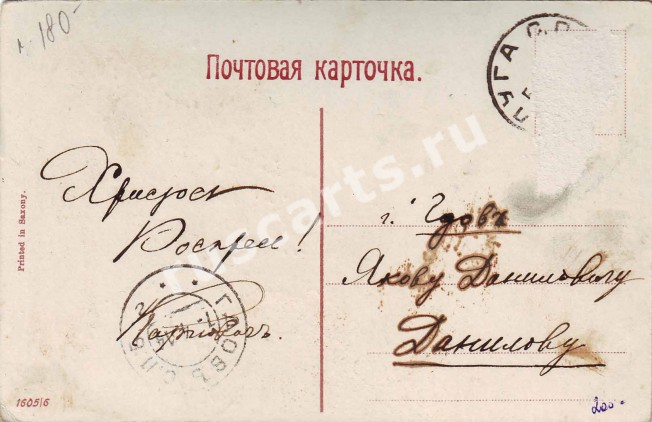 г. 180-
ЛУГА С.П.
Почтовая карточка.
Христосъ
Воскресе!
г. Гдовъ
Якову Даниловичу
Данилову
ГДОВЪ С.П.Б.
Printed in Saxony.
1605/6
200-
ruscarts.ru